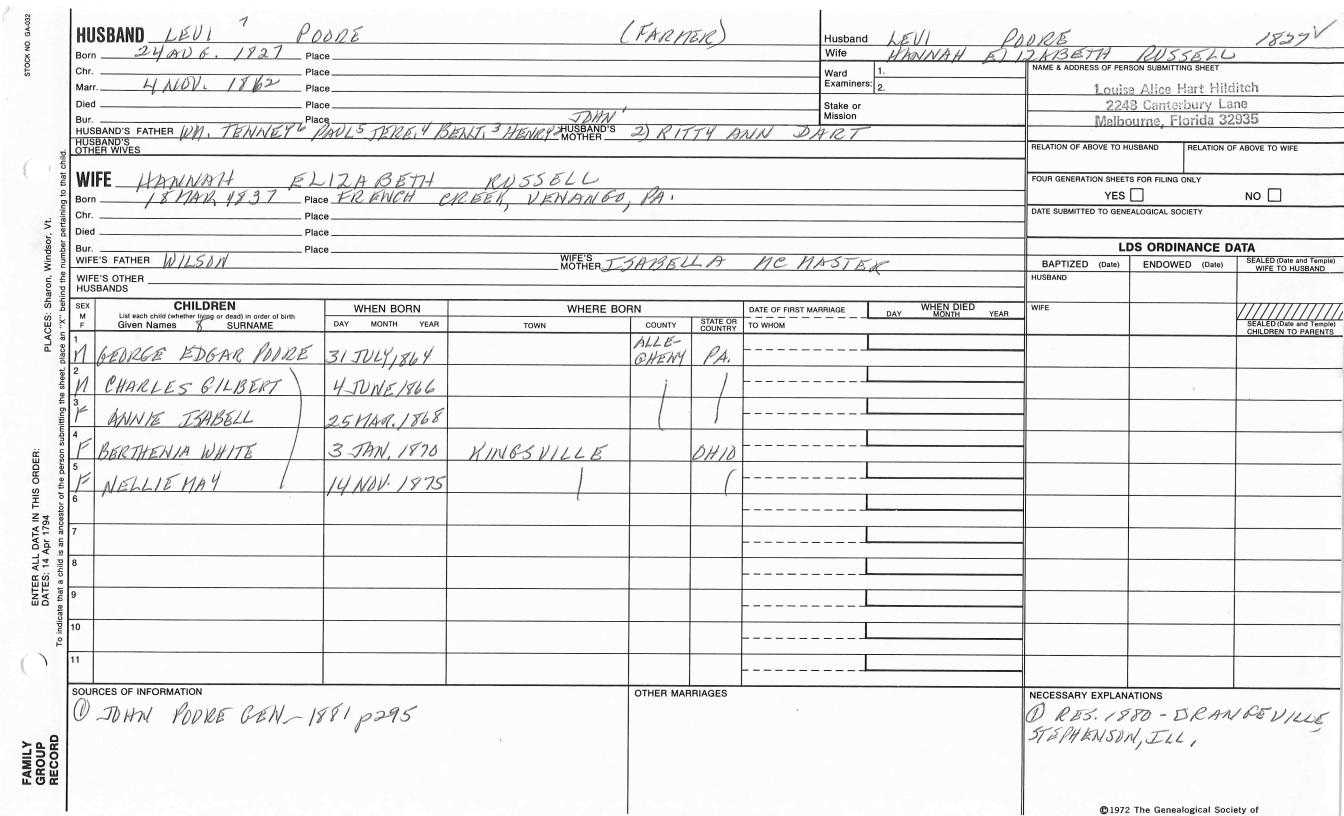 STOCK NO. GA-032
HUSBAND LEVI 7 POORE (FARMER)
Born 24 AUG. 1827 Place
Chr. Place
Marr. 4 NOV. 1862 Place
Died Place
Bur. Place
HUSBAND'S FATHER WM. TENNEY6 PAUL5 JERE.4 BENJ.3 HENRY2 JOHN1 HUSBAND'S MOTHER 2) RITTY ANN DART
HUSBAND'S OTHER WIVES
WIFE HANNAH ELIZABETH RUSSELL
Born 18 MAR 1837 Place FRENCH CREEK, VENANGO, PA.
Chr. Place
Died Place
Bur. Place
WIFE'S FATHER WILSON WIFE'S MOTHER ISABELLA MC MASTER
WIFE'S OTHER HUSBANDS
Husband LEVI POORE 1827 ✓
Wife HANNAH ELIZABETH RUSSELL
Ward Examiners: 1. 2.
Stake or Mission
NAME & ADDRESS OF PERSON SUBMITTING SHEET
Louise Alice Hart Hilditch
2248 Canterbury Lane
Melbourne, Florida 32935
RELATION OF ABOVE TO HUSBAND RELATION OF ABOVE TO WIFE
FOUR GENERATION SHEETS FOR FILING ONLY
YES NO
DATE SUBMITTED TO GENEALOGICAL SOCIETY
LDS ORDINANCE DATA
BAPTIZED (Date) ENDOWED (Date) SEALED (Date and Temple) WIFE TO HUSBAND
HUSBAND
WIFE
SEALED (Date and Temple) CHILDREN TO PARENTS
SEX M F
CHILDREN
List each child (whether living or dead) in order of birth
Given Names 8 SURNAME
WHEN BORN
DAY MONTH YEAR
WHERE BORN
TOWN COUNTY STATE OR COUNTRY
DATE OF FIRST MARRIAGE
TO WHOM
WHEN DIED
DAY MONTH YEAR
1 M GEORGE EDGAR POORE 31 JULY, 1864 ALLE-GHENY PA.
2 M CHARLES GILBERT 4 JUNE, 1866
3 F ANNIE ISABELL 25 MAR. 1868
4 F BERTHENIA WHITE 3 JAN. 1870 KINGSVILLE OHIO
5 F NELLIE MAY 14 NOV. 1875
6
7
8
9
10
11
SOURCES OF INFORMATION
① JOHN POORE GEN— 1881 p295
OTHER MARRIAGES
NECESSARY EXPLANATIONS
① RES. 1880 - ORANGEVILLE
STEPHENSON, ILL,
©1972 The Genealogical Society of
PLACES: Sharon, Windsor, Vt.
ENTER ALL DATA IN THIS ORDER:
DATES: 14 Apr 1794
To indicate that a child is an ancestor of the person submitting the sheet, place an "X" behind the number pertaining to that child.
FAMILY
GROUP
RECORD